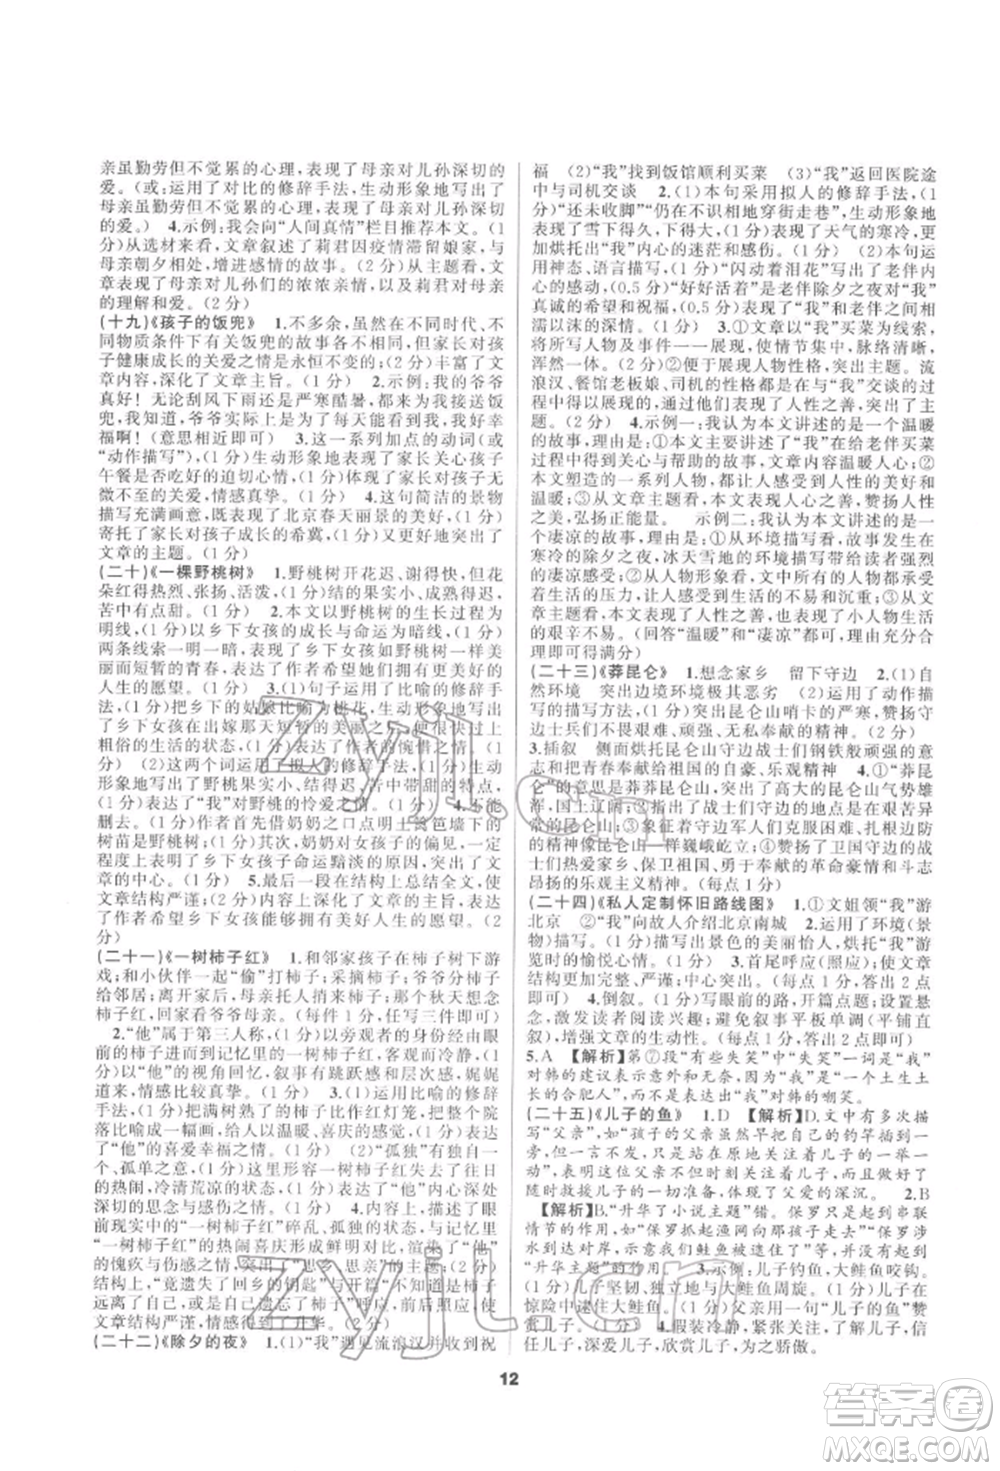 亲虽勤劳但不觉累的心理，表现了母亲对儿孙深切的
爱。（或：运用了对比的修辞手法，生动形象地写出了
母亲虽勤劳但不觉累的心理，表现了母亲对儿孙深切
的爱。） 4.示例：我会向“人间真情”栏目推荐本文。（1
分）从选材来看，文章叙写了莉君因疫情滞留娘家，
与母亲朝夕相处，增进感情的故事。（2分）从主题看，文
章表现了母亲对儿孙们的浓浓亲情，以及莉君对母亲
的理解和爱。（2分）
(十九)《孩子的饭兜》 1.不多余，虽然在不同时代、不
同物质条件下有关饭兜的故事有不同，但家长对孩
子健康成长的关爱之情是永恒不变的；（2分）丰富了文
章内容，深化了文章主旨。（1分） 2.示例：我的爷爷
真好！无论刮风下雨还是严寒酷暑，都坚持接送饭
兜，我知道，爷爷实际上是为了每天能看到我，我好幸
福啊！（意思相近即可） 3.这一系列加点的动词（或
“动作描写”），（1分）生动形象地表现了家长关心孩子
午餐是否吃好的急切心情，（1分）体现了家长对孩子无
微不至的关爱，情感真挚。（1分） 4.这句简洁的景物
描写，充满画意，（1分）表现了北京春天丽景的美好，（1分）
寄托了家长对孩子茁壮成长的希冀，（1分）突出了
文章的主题。（1分）
(二十)《一棵野桃树》 1.野桃树开花迟、谢得快，但花
朵红得热烈、张扬、活泼；结的果实小、成熟晚，但
苦中有点甜。（2分） 2.本文以野桃树的生长过程为
明线，（1分）以乡下女孩的成长与命运为暗线，（1分）
两条线索一实一虚，相互映衬，（1分）突出了女孩美
丽而短暂的青春，表达了作者希望她们拥有更美好
的人生的愿望。（1分） 3.(1)句子运用了比喻的修辞手
法，（1分）把乡下的姑娘比喻为桃花，（1分）生动形象地写
出了乡下女孩在出嫁那天短暂的美丽，随后便过上
粗俗的生活的状态，（1分）表达了作者的惋惜之情。（1
分） (2)这两个词运用了拟人的修辞手法，（1分）生动
形象地写出了野桃果实小、结得密、苦中带甜的特点，
（1分）表现了“我”对野桃的怜爱之情。（1分） 4.不能
删去。（1分）作者首先借奶奶之口点明土篱笆墙下的
树苗是野桃树；（1分）其次，奶奶对女孩子的偏见，一定
程度上造成了女孩子们黯淡的命运，突出了文章的
中心。（1分） 5.最后一段在结构上总结全文，（1分）使
文章结构严谨；（1分）在内容上深化了文章的主旨，表达
了作者希望乡下女孩子们拥有美好人生的愿望。（2
分）
(二十一)《一树柿子红》 1.和邻家孩子在柿子树下游
戏；和小伙伴一起“偷”打柿子；采摘柿子；爷爷分柿子
给邻居；离家求学，母亲托人捎来柿子；那个秋天想念
柿子红，回家看爷爷母亲。（每件1分，任写三件即可）
2.“他”属于第三人称，（1分）以旁观者的身份经由眼
前的柿子进而写到回忆里的一树柿子红，客观冷静，（1
分）以“他”的视角写回忆，没有跳跃感和层次感，娓娓
道来，情感比较真挚。（1分） 3.(1)运用了比喻的修辞
手法，（1分）把成熟了的柿子比作红灯笼，（1分）把整个院
落比成一幅画，给人以温暖、喜庆的感觉，（1分）表达
了“他”的喜爱幸福之情。（1分） (2)“孤独”一词写出了孤
单、不合群之意，（1分）表面上写一树柿子红失去往日
的热闹，冷清荒凉的状态，（1分）实则表达了“他”内心深处
深切的思念与伤感之情。（1分） 4.内容上，描写了眼
前现在的“一树柿子红”碎乱、孤独的特点，（1分）与以前
“一树柿子红”的热闹喜庆形成鲜明对比，渲染了“他”
的愧疚与伤感情绪，点明了思乡思亲的主题；（2分）
结构上，“竟遗失了回乡的钥匙”与开篇“不知道是柿子
远离了自己，还是自己抛弃了柿子”呼应，前后照应，使
主旨得到了升华。（2分）
(二十二)《除夕的夜》 1.(1)“我”遇见流浪汉并收到祝
福 (2)“我”找到饭馆顺利买菜 (3)“我”返回医院途
中与司机交谈 2.(1)本句采用拟人的修辞手法，（1
分）“还未收脚”“仍在不识相地穿街走巷”，生动形象地
表现了雪下得久、下得大，（1分）写出了天气的寒冷，
更加烘托出“我”内心的迷茫和感伤。（1分） (2)本句运
用神态、语言描写，（1分）“闪动着泪花”写出了老伴内
心的感动，（0.5分）“好好活着”是老伴除夕之夜对“我”
真诚的希望和祝福，（0.5分）表现了“我”和老伴相
濡以沫的深情。（1分） 3.①文章以“我”买菜为线索，
将所写人物及事件一一展现，使情节集中，脉络清晰，
浑然一体。（2分）②便于展现人物性格，突出主题。流
浪汉、餐馆老板娘、司机的性格都是在与“我”交谈的过程
中得以展现的，同时他们也表现了人性之善，凸显了主
题。（2分） 4.示例一：我认为本文讲述的是个温暖
的故事，理由是：①本文主要讲述了“我”在给老伴买菜
过程中得到关心与帮助的故事，文章内容温暖人心；②
本文塑造的一系列人物，都能关心、善待他人，给人以
温暖；③从文章主题看，本文表现人心之善，赞扬人性
之美，弘扬正能量。 示例二：我认为本文讲述的是个
凄凉的故事，理由是：①从环境描写来看，故事发生在
寒冷的除夕雪夜，冰天雪地的环境描写带给读者强烈
的凄凉感受；②从人物形象看，本文的几个人物都承受
着生活的压力，他们都有着各自的悲和沉重；③从表达
主题看，本文表现了人性之善，也表现了小人物生活
的艰辛不易。（回答“温暖”和“凄凉”都可以，言之有理
即可得满分）
(二十三)《莽昆仑》 1.想念家乡 留下守边 2.(1)自
然环境 突出边境环境极其恶劣 (2)运用了动作、
神态描写，（1分）突出了昆仑山哨卡的严寒，赞扬了守
边战士们艰苦忍耐、顽强、无私奉献的精神。（2分）
3.插叙 侧面烘托昆仑山守边战士们钢铁般顽强的意
志和把青春奉献给祖国的自豪、乐观精神 4.①“莽昆
仑”意为莽莽昆仑，（1分）突出了高大的昆仑山气势雄
浑、国土辽阔；②点明了战士们守边的地点是在艰苦异
常的昆仑山；③象征着守边军人们克服困难、顽强拼搏
的精神像昆仑山一样巍峨屹立；④赞扬了卫国守边的战
士们热爱国家、保卫祖国、勇于奉献的革命豪情和斗志
昂扬的乐观主义精神。（每点1分）
(二十四)《私人定制怀旧路线图》 1.文姐领“我”游
北京 ②“我”向故人介绍北京南城 2.运用了环境（景
物）描写，（1分）描写出景色的美丽怡人，烘托“我”游
览时的愉悦心情。（1分） 3.首尾呼应（照应）；（1分）使文章
结构更加完整、严谨；中心突出。（2分，答出1点得1
分） 4.倒叙。（1分）写眼前的路，开篇点题，制造悬
念，激发读者阅读兴趣；（2分）避免叙事平板单调（平铺直
叙），增强文章的生动性。（1分，答出一点即可）
5.A 【解析】第⑦段“有些失笑”中“失笑”一词是“我”
对韩的建议表示意外和无奈，因为“我”是一个土生土
长的合肥人”，并未表现出“我”对韩的嘲笑。
(二十五)《儿子的鱼》 1.D 【解析】D.文中有多次描
写“父亲”，如“孩子的父亲虽然早把自己的钓竿插到一
旁，但一言不发，只站在远远地关注着儿子的一举一
动”，说明父亲虽然没有直接帮助儿子，而且做好了
援救儿子的一切准备，体现了父爱的深沉。 2.B
【解析】B.“升华了小说主题”错。保罗只是起到串联
情节的作用，例如“保罗抓起渔网向着孩子”“保罗涉
水奔向岸边”，示意我们鲑鱼已经逃走了，并没有
“升华主题”的作用。 3.示例：儿子钓鱼，大鲑鱼咬钩。
（1分）儿子坚韧、独立地与大鲑鱼周旋。（1分）儿子在
惊险中放走大鲑鱼。（1分） 4.假装冷静，紧张关注，
信任儿子，深爱儿子，欣赏儿子，为之骄傲。
12
zyjl.cn
zyjl.cn
答案圈
MXQE.COM